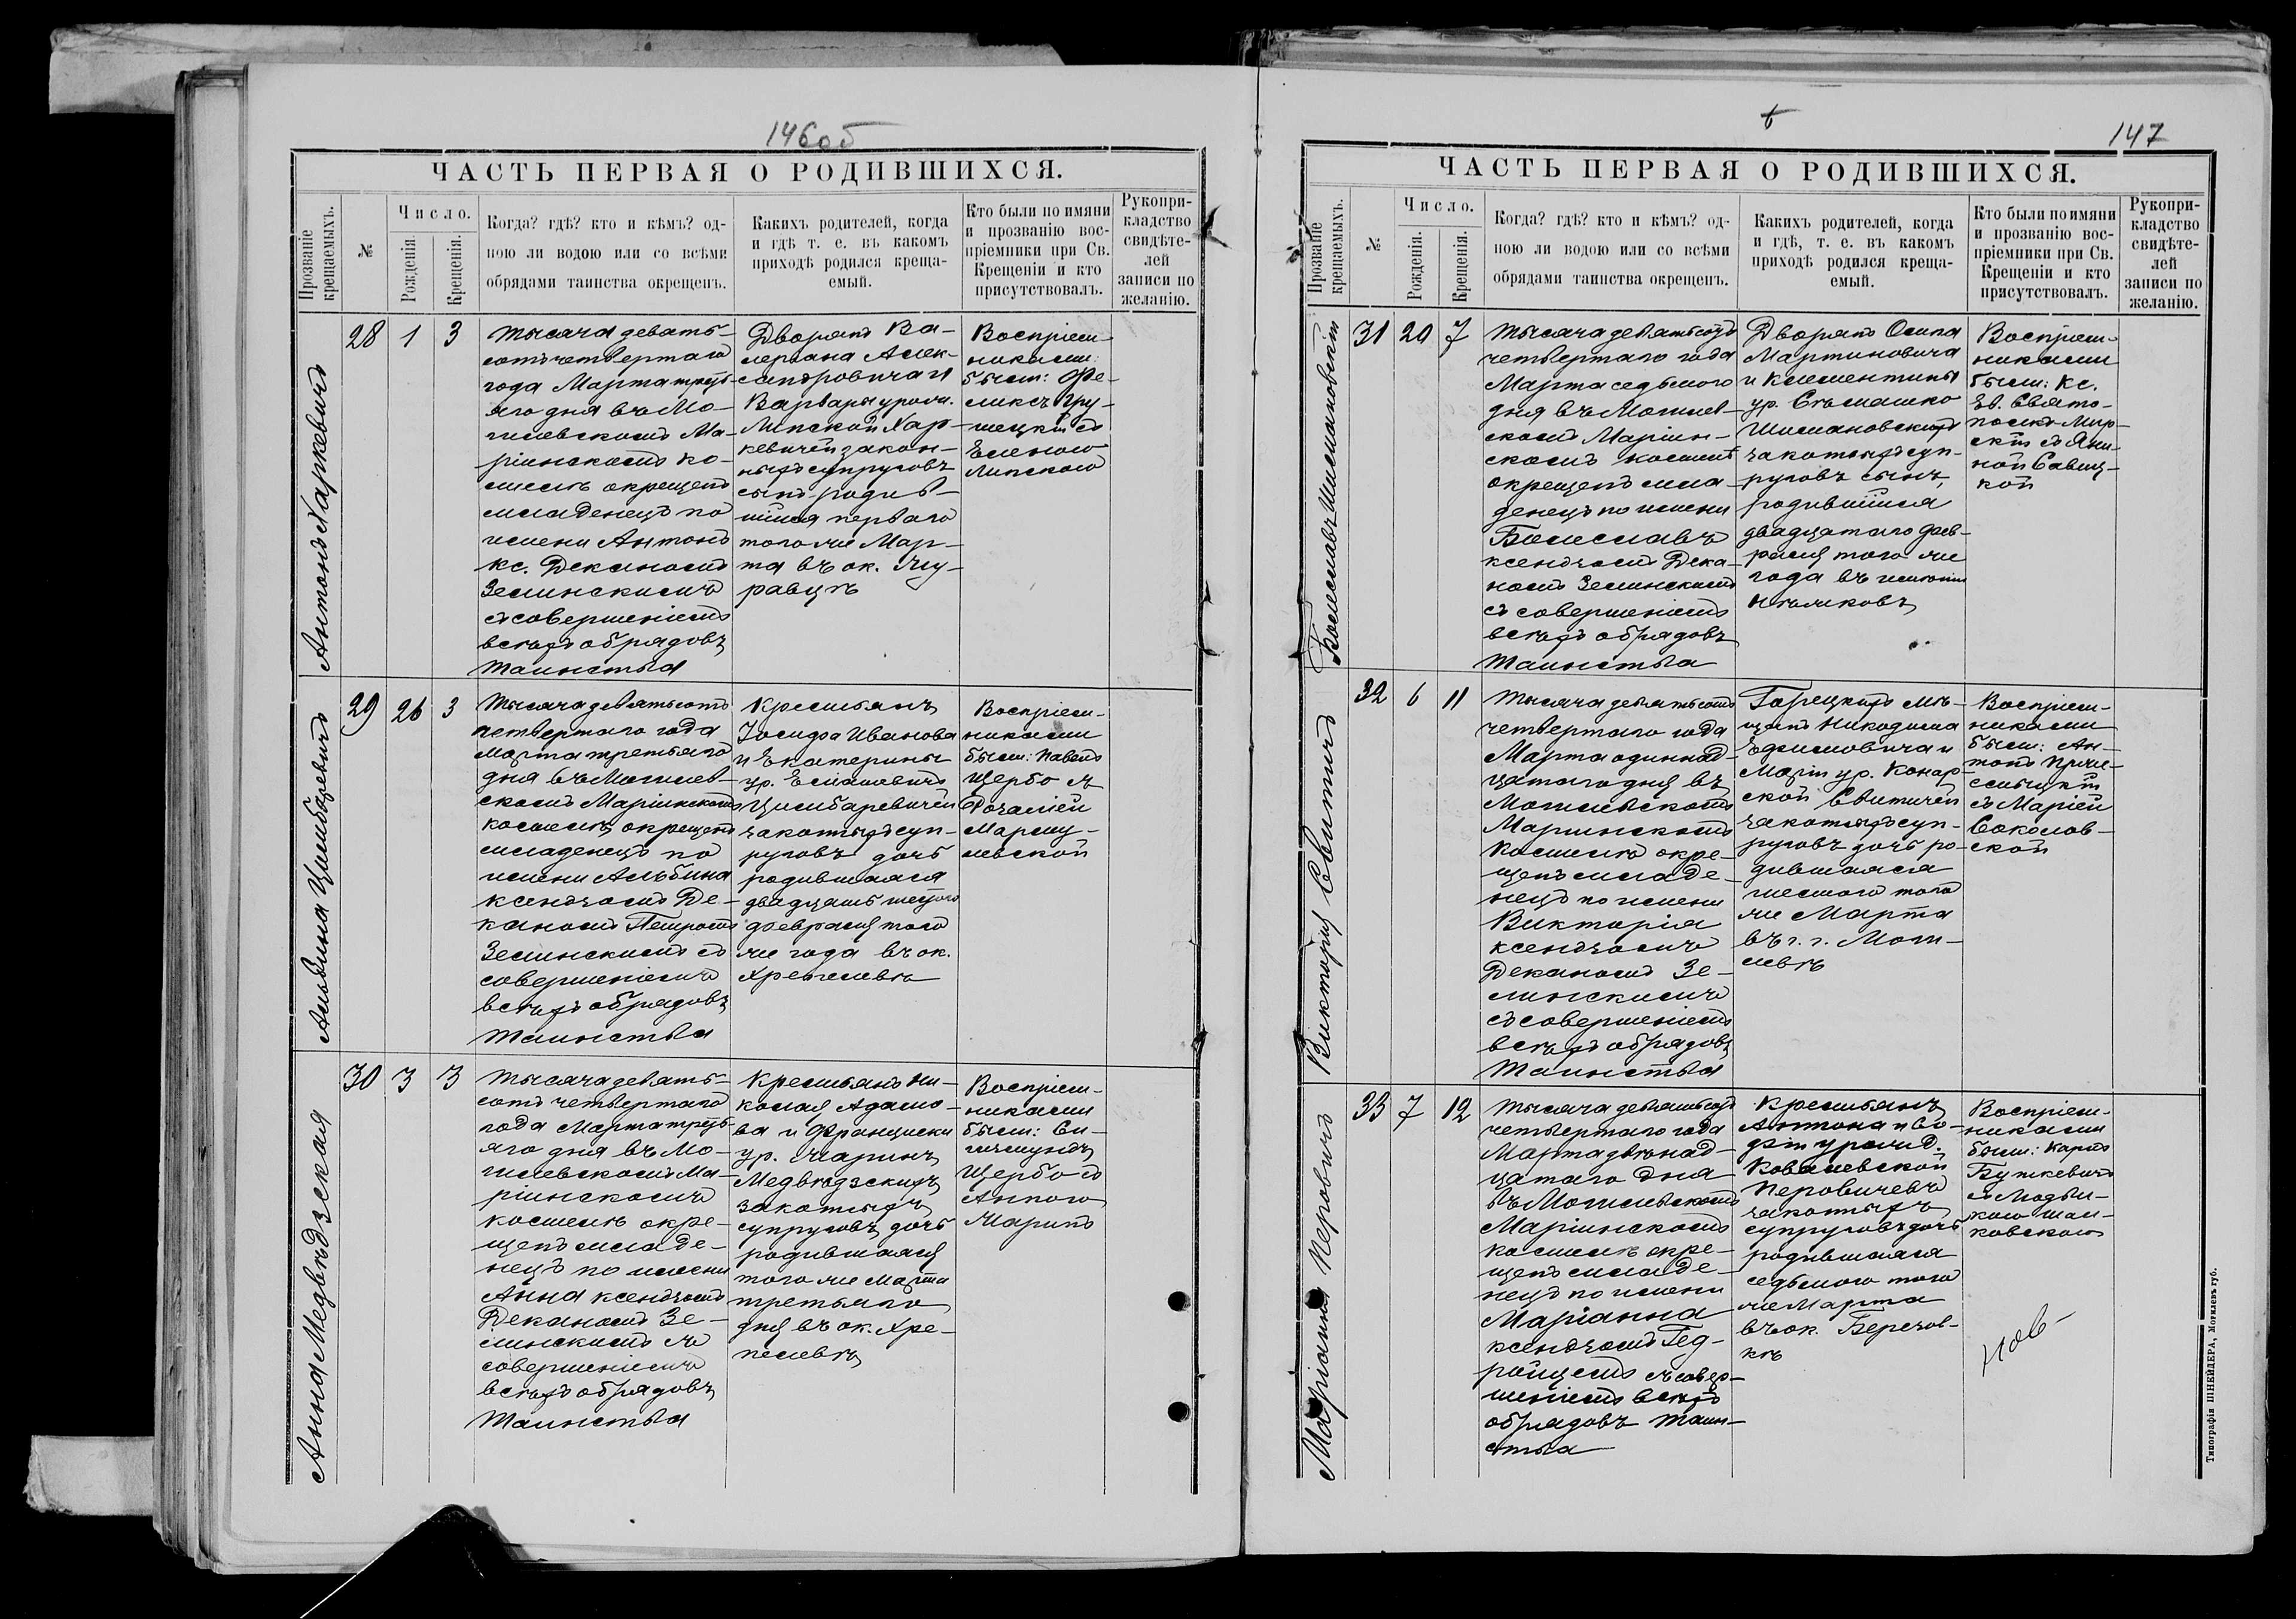 146об
ЧАСТЬ ПЕРВАЯ О РОДИВШИХСЯ.
Прозваніе
крещаемыхъ.
№
Число.
Рожденія.
Крещенія.
Когда? гдѣ? кто и кѣмъ? од-
ною ли водою или со всѣми
обрядами таинства окрещенъ.
Какихъ родителей, когда
и гдѣ т. е. въ какомъ
приходѣ родился креща-
емый.
Кто были по имяни
и прозванію вос-
пріемники при Св.
Крещеніи и кто
присутствовалъ.
Рукопри-
кладство
свидѣте-
лей
записи по
желанію.
Антонъ Харкевичъ
28
1
3
Тысяча девять-
сотъ четвертаго
года Марта треть-
яго дня въ Мо-
гилевскомъ Ма-
ріинскомъ ко-
стелѣ окрещенъ
младенецъ по
имени Антонъ
кс. Деканомъ
Зелинскимъ
съ совершеніемъ
всѣхъ обрядовъ
таинства
Дворянъ Ва-
леріана Алек-
сандровича и
Варвары урожд.
Липской Хар-
кевичей закон-
ныхъ супруговъ
сынъ родив-
шійся перваго
того же Мар-
та въ ок. Жу-
равцѣ
Воспріем-
никами
были: Фе-
ликсъ Гру-
шецкій съ
Еленою
Липскою
Альбина Цимбаревичъ
29
26
3
Тысяча девятьсотъ
четвертаго года
Марта третьяго
дня въ Могилев-
скомъ Маріинскомъ
костелѣ окрещенъ
младенецъ по
имени Альбина
ксендзомъ Де-
каномъ Петромъ
Зелинскимъ съ
совершеніемъ
всѣхъ обрядовъ
таинства
Крестьянъ
Іосифа Иванова
и Екатерины
ур.
Цимбаревичей
законныхъ суп-
руговъ дочь
родившаяся
двадцать шестого
февраля того
же года въ ок.
Воспріем-
никами
были: Павелъ
Щербо съ
Розаліей
Марцу-
левской
Анна Медвѣдзская
30
3
3
Тысяча девять-
сотъ четвертаго
года Марта треть-
яго дня въ Мо-
гилевскомъ Ма-
ріинскомъ
костелѣ окре-
щенъ младе-
нецъ по имени
Анна ксендзомъ
Деканомъ Зе-
линскимъ съ
совершеніемъ
всѣхъ обрядовъ
таинства
Крестьянъ Ни-
колая Адамо-
ва и Франциски
ур. Маринъ
Медвѣдзскихъ
законныхъ
супруговъ дочь
родившаяся
того же Марта
третьяго
дня въ ок. Хре-
пелевѣ
Воспріем-
никами
были: Си-
гизмундъ
Щербо съ
Анною
Маринъ
147
ЧАСТЬ ПЕРВАЯ О РОДИВШИХСЯ.
Прозваніе
крещаемыхъ.
№
Число.
Рожденія.
Крещенія.
Когда? гдѣ? кто и кѣмъ? од-
ною ли водою или со всѣми
обрядами таинства окрещенъ.
Какихъ родителей, когда
и гдѣ, т. е. въ какомъ
приходѣ родился креща-
емый.
Кто были по имяни
и прозванію вос-
пріемники при Св.
Крещеніи и кто
присутствовалъ.
Рукопри-
кладство
свидѣте-
лей
записи по
желанію.
Болеславъ Шимановскій
31
20
7
Тысяча девятьсотъ
четвертаго года
Марта седьмого
дня въ Могилев-
скомъ Маріин-
скомъ костелѣ
окрещенъ мла-
денецъ по имени
Болеславъ
ксендзомъ Дека-
номъ Зелинскимъ
съ совершеніемъ
всѣхъ обрядовъ
таинства
Дворянъ Осипа
Мартиновича
и Клементины
ур. Сѣмашко
Шимановскихъ
законныхъ суп-
руговъ сынъ,
родившійся
двадцатаго фев-
раля того же
года въ имѣніи
Воспріем-
никами
были: Кс.
Эв. Свято-
полкъ Мир-
скій съ Яни-
ной Савиц-
кой
Викторія Свитичъ
32
6
11
Тысяча девятьсотъ
четвертаго года
Марта одиннад-
цатаго дня въ
Могилевскомъ
Маріинскомъ
костелѣ окре-
щенъ младе-
нецъ по имени
Викторія
ксендзомъ
Деканомъ Зе-
линскимъ
съ совершеніемъ
всѣхъ обрядовъ
таинства
Горецкихъ мѣ-
щанъ Никодима
Ефимовича и
Маріи ур. Конар-
ской Свитичей
законныхъ суп-
руговъ дочь ро-
дившаяся
шестого того
же Марта
въ г. г. Моги-
левѣ
Воспріем-
никами
были: Ан-
тонъ
съ Маріей
Соколов-
ской
Маріанна Перовичъ
33
7
12
Тысяча девятьсотъ
четвертаго года
Марта двѣнад-
цатаго дня
въ Могилевскомъ
Маріинскомъ
костелѣ окре-
щенъ младе-
нецъ по имени
Маріанна
ксендзомъ Гед-
ройцемъ съ совер-
шеніемъ всѣхъ
обрядовъ таин-
ства
Крестьянъ
Антона и Со-
фіи урожд.
Ковалевской
Перовичевъ
законныхъ
супруговъ дочь
родившаяся
седьмого того
же Марта
въ ок. Березов-
кѣ
Воспріем-
никами
были: Карлъ
Буткевичъ
ковскою
Типографія ШНЕЙДЕРА, Могилевъ губ.